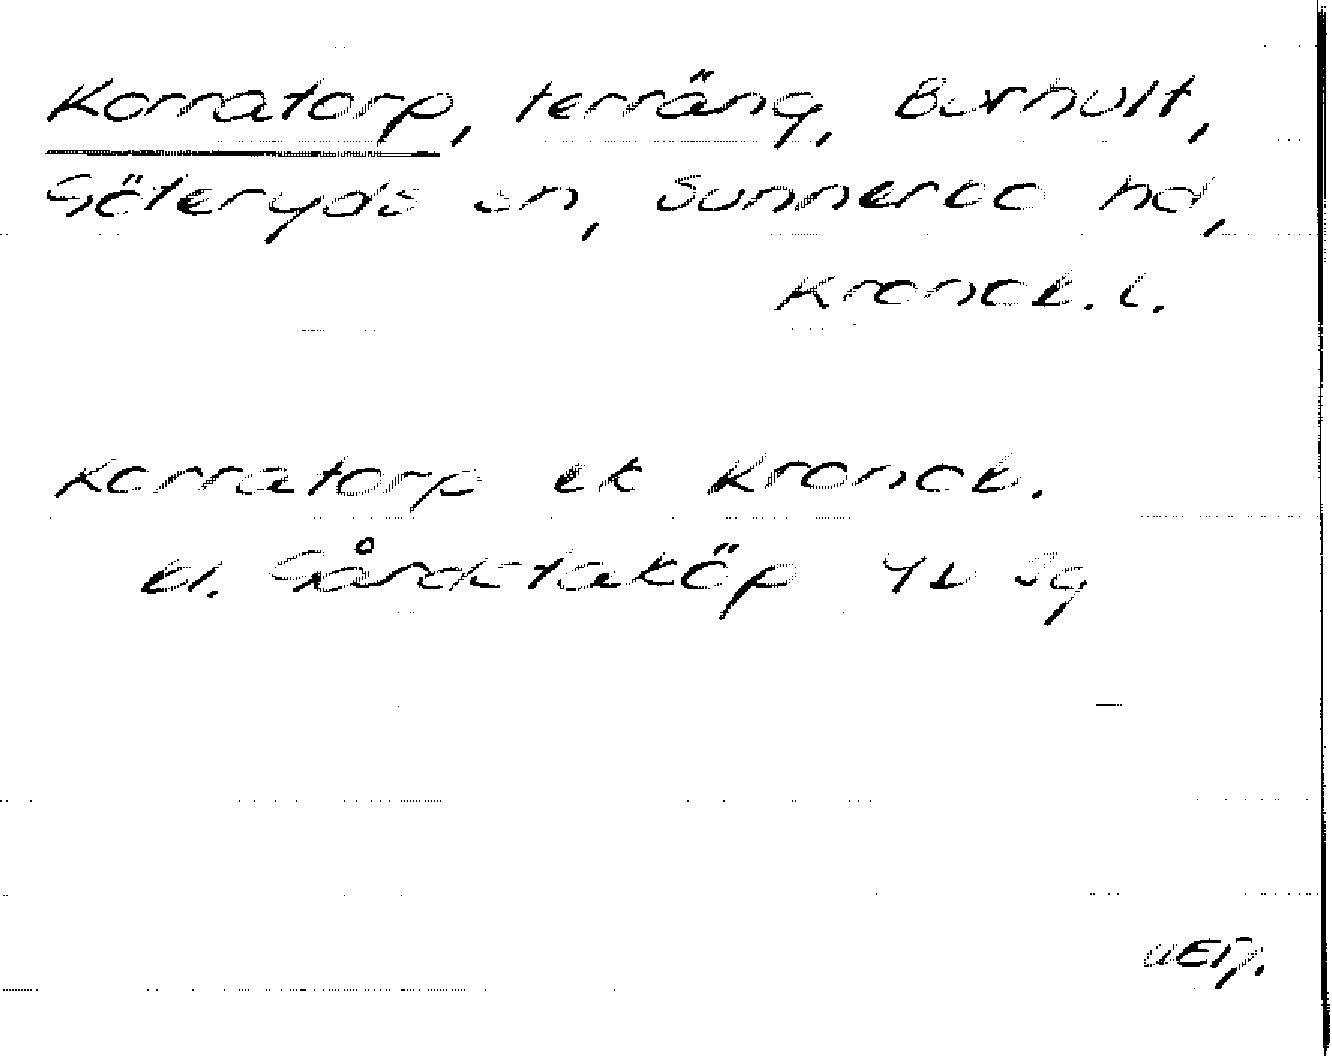 Korratorp, terräng, Burhult,
Göteryds sn, Sunnerbo hd,
Kronob. l.
Korratorp ek Kronob.
el. Gårdstaköp 42 Sg